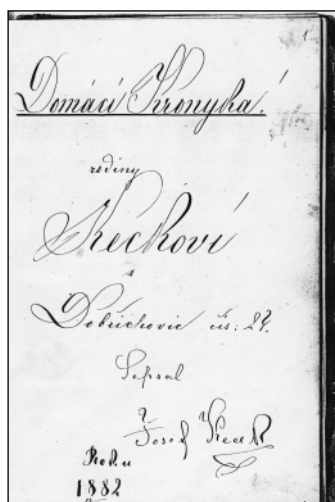 1
Domácí Kronyka!
rodiny
Keckovi
z
Dobřichovic čís: 27.
Sepsal
Josef Keck
Roku
1882